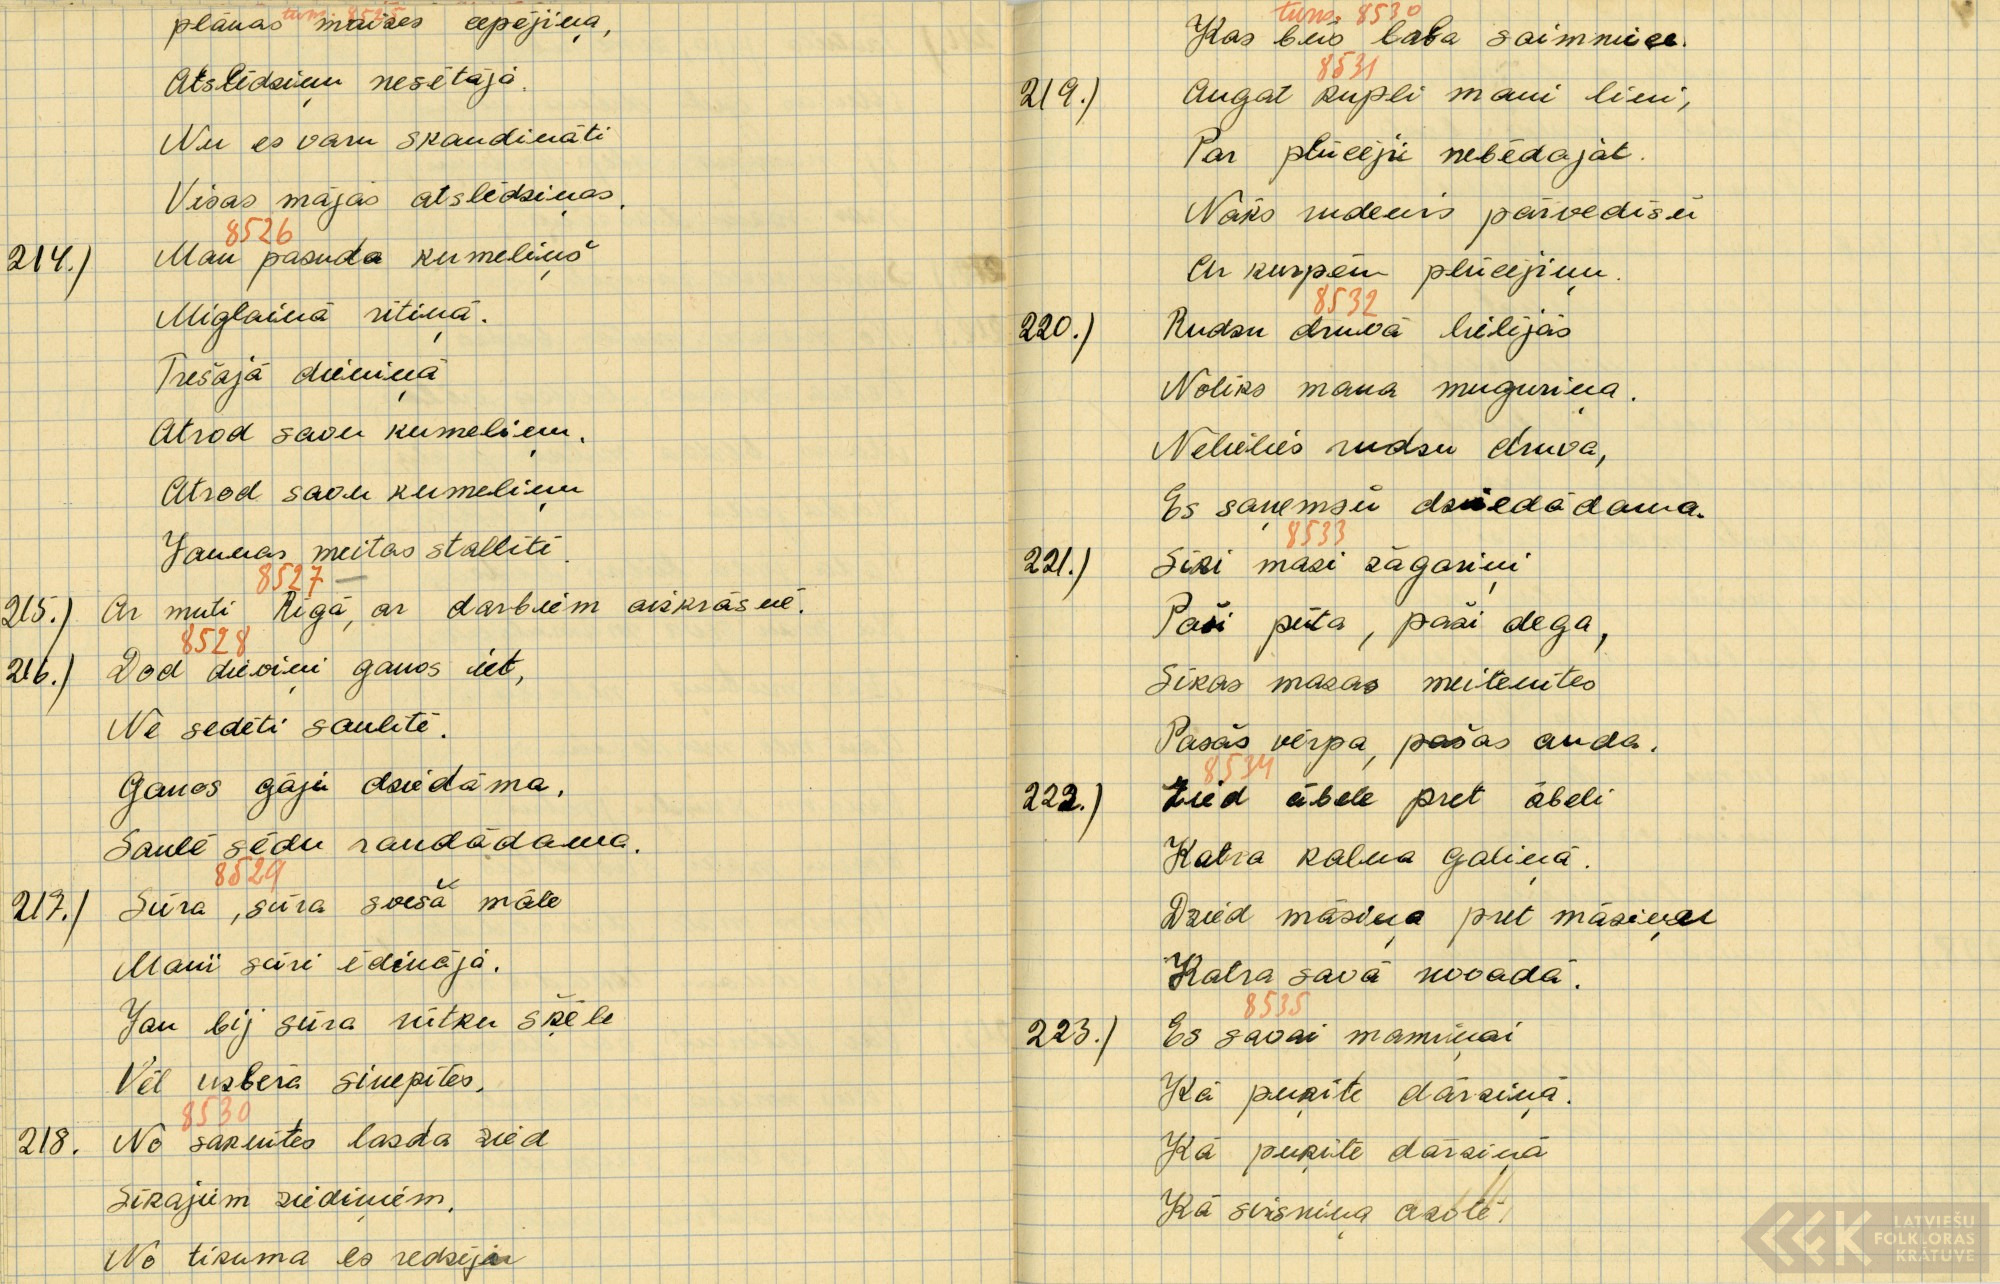 turp. 8525
plānas maizes cepējiņa,
Atslēdziņu nesētājā.
Nu es varu skandināti
Visas mājas atslēdziņas.
8526
214.) Man pazuda kumeliņš
Miglainā rītiņā.
Trešajā dieniņā
Atrod savu kumeliņu.
Atrod savu kumeliņu
Jaunas meitas stallītī.
8527 —
215.) Ar muti Rīgā, ar darbiem aizkrāsnē.
8528
216.) Dod dieviņi ganos iet,
Nē sēdēti saulītē.
Ganos gāju dziedāma,
Saulē sēdu raudādama.
8529
217.) Sūra, sūra svešā māte
Manī sūri ēdināja.
Jau bij sūra rūtku šķēle
Vēl uzbēra sinepītes.
8530
218. No saknītes lazda zied
Sīkajiem ziediņiem.
No tikuma es redzēju
turp. 8530
Kas būs laba saimniece.
8531
219.) Augat kupli mani lini,
Par plūcēju nebēdajāt.
Nāks rudenis pārvedīšu
Ar kurpēm plūcējiņu.
8532
220.) Rudzu druvā lielījās
Noliks mana muguriņa.
Nelielies rudzu druva,
Es saņemšu dziedādama.
8533
221.) Sīki mazi žagariņi
Paši pūta, paši dega,
Sīkas mazas meitenītes
Pašas vērpa, pašas auda.
8534
222.) Zied ābele pret ābeli
Katra kalna galiņā.
Dzied māsiņa pret māsiņu
Katra savā novadā.
8535
223.) Es savai mamiņai
Kā puķīte dārziņā.
Kā puķīte dārziņā
Kā sirsniņa azotē.
LATVIEŠU
FOLKLORAS
KRĀTUVE